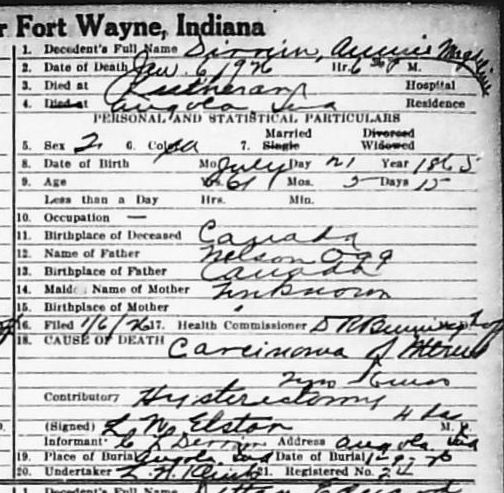 r Fort Wayne, Indiana
1. Decedent's Full Name Derrim, Annie Magdeline
2. Date of Death Jan. 6, 1926 Hr. 6 M.
3. Died at Lutheran Hospital
4. Died at Angola Ind Residence
PERSONAL AND STATISTICAL PARTICULARS
5. Sex 2 6. Color 7. Married Single Divorced Widowed
8. Date of Birth Mo. July Day 21 Year 1865
9. Age Yrs. 61 Mos. 5 Days 15
Less than a Day Hrs. Min.
10. Occupation —
11. Birthplace of Deceased Canada
12. Name of Father Nelson Ogg
13. Birthplace of Father Canada
14. Maiden Name of Mother Unknown
15. Birthplace of Mother "
16. Filed 1/6/26 17. Health Commissioner
18. CAUSE OF DEATH Carcinoma of Uterus
Contributory Hysterectomy
4 das
(Signed) L. W. Elston M. D.
Informant C J Derrim Address Angola Ind
19. Place of Burial Angola Ind Date of Burial 1-9-26
20. Undertaker L. N. Klink 21. Registered No. 24
1. Decedent's Full Name